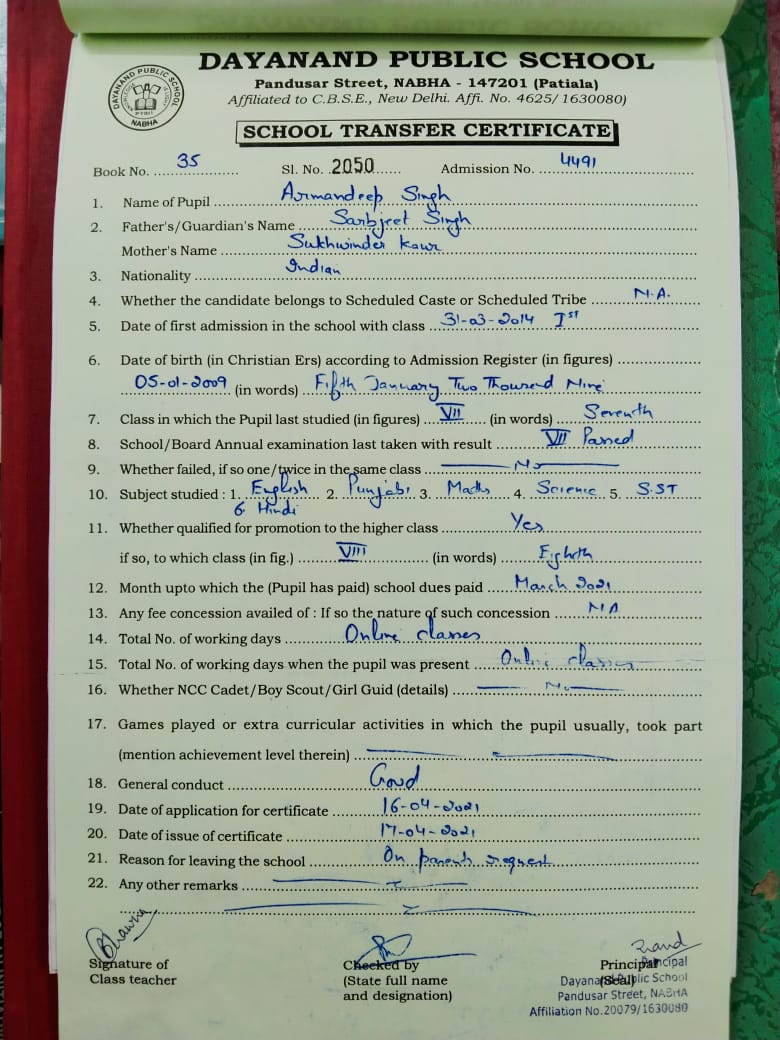 DAYANAND PUBLIC SCHOOL
Pandusar Street, NABHA - 147201 (Patiala)
Affiliated to C.B.S.E., New Delhi. Affi. No. 4625/ 1630080)
DAYANAND PUBLIC SCHOOL NABHA
SCHOOL TRANSFER CERTIFICATE
Book No. 35 Sl. No. 2050 Admission No. 4491
1. Name of Pupil Armandeep Singh
2. Father's/Guardian's Name Sarbjeet Singh
Mother's Name Sukhwinder Kaur
3. Nationality Indian
4. Whether the candidate belongs to Scheduled Caste or Scheduled Tribe N.A.
5. Date of first admission in the school with class 31-03-2014 Ist
6. Date of birth (in Christian Ers) according to Admission Register (in figures)
05-01-2009 (in words) Fifth January Two Thousand Nine
7. Class in which the Pupil last studied (in figures) VII (in words) Seventh
8. School/Board Annual examination last taken with result VII Passed
9. Whether failed, if so one/twice in the same class No
10. Subject studied : 1. English 2. Punjabi 3. Maths 4. Science 5. S.ST
6 Hindi
11. Whether qualified for promotion to the higher class Yes
if so, to which class (in fig.) VIII (in words) Eighth
12. Month upto which the (Pupil has paid) school dues paid March 2021
13. Any fee concession availed of : If so the nature of such concession NA
14. Total No. of working days Online classes
15. Total No. of working days when the pupil was present Online classes
16. Whether NCC Cadet/Boy Scout/Girl Guid (details) No
17. Games played or extra curricular activities in which the pupil usually, took part
(mention achievement level therein)
18. General conduct Good
19. Date of application for certificate 16-04-2021
20. Date of issue of certificate 17-04-2021
21. Reason for leaving the school On parents request
22. Any other remarks
Bhawna
Signature of
Class teacher
Checked by
(State full name
and designation)
Principal
(Seal)
Principal
Dayanand Public School
Pandusar Street, NABHA
Affiliation No.20079/1630080